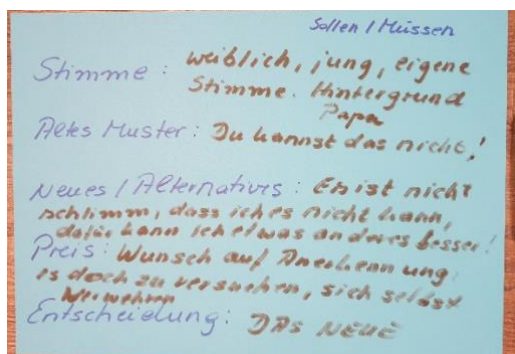 Sollen / Müssen
Stimme: weiblich, jung, eigene
Stimme. Hintergrund
Papa
Altes Muster: Du kannst das nicht!
Neues / Alternatives: Es ist nicht
schlimm, dass ich es nicht kann,
dafür kann ich etwas anderes besser!
Preis: Wunsch auf Anerkennung
es doch zu versuchen, sich selbst
Verwehren
Entscheidung: DAS NEUE